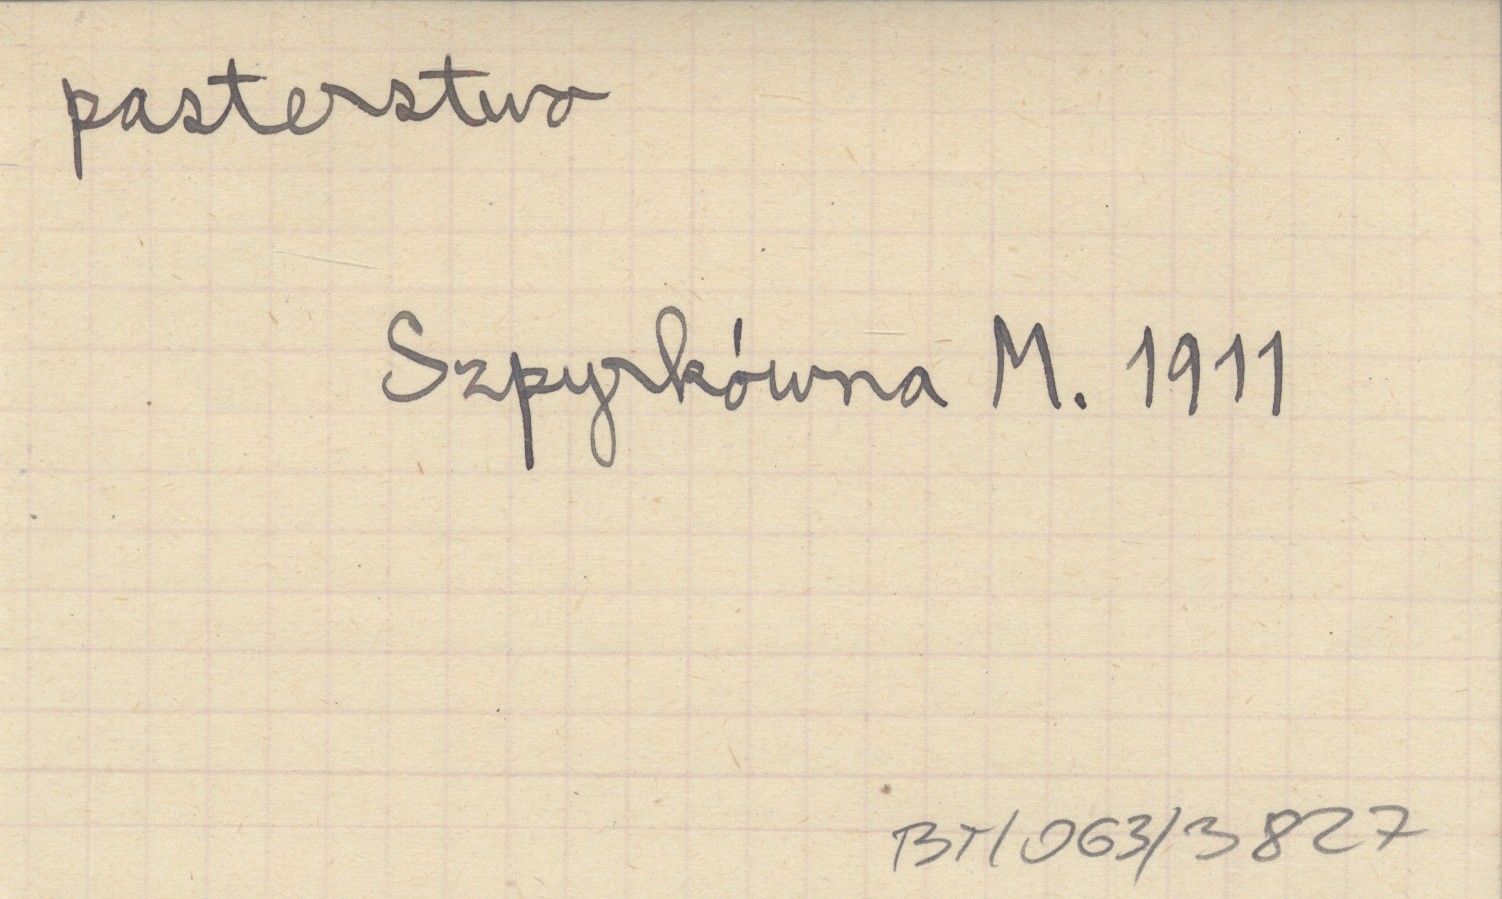 pasterstwo
Szpyrkówna M. 1911
BT/063/3827